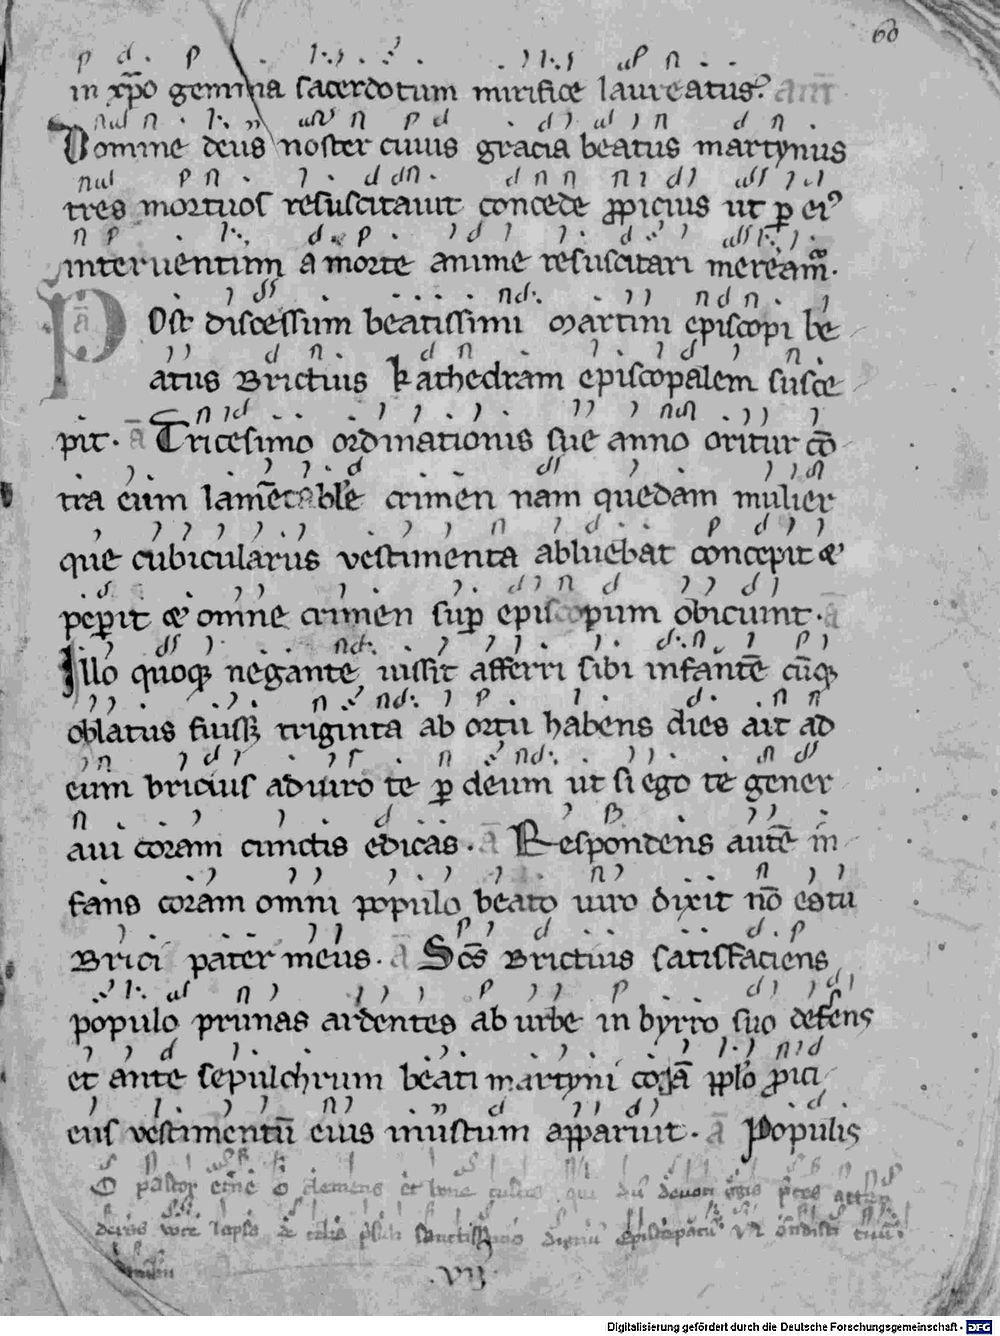 60
in xp̄o gemma sacerdotum mirifice laureatus. am̄
Domine deus noster cuius gracia beatus martynus
tres mortuos resuscitauit concede ꝓpicius ut ꝑ ei᾽
interuentum a morte anime resuscitari meream̄.
Post discessum beatissimi martini episcopi be
ā
atus Brictius kathedram episcopalem susce
pit. ā Tricesimo ordinationis sue anno oritur cō
tra eum lam̄etabile crimen nam quedam mulier
que cubicularius vestimenta abluebat concepit &
peꝑit & omne crimen suꝑ episcopum obiciunt. ā
Illo quoqꝫ negante iussit afferri sibi infantē cūqꝫ
oblatus fuissꝫ triginta ab ortu habens dies ait ad
eum bricius adiuro te ꝑ deum ut si ego te gener
aui coram cunctis edicas. ā Respondens autē in
fans coram omni populo beato uiro dixit nō es tu
Brici pater meus. ā Scs̄ Brictius satisfaciens
populo prunas ardentes ab urbe in byrro suo defens
et ante sepulchrum beati martyni corā pplo ꝓici
ens vestimentū eius inustum apparuit. ā Populis
O pastor et̄ne o clemens et bone custos qui
.vij.
Digitalisierung gefördert durch die Deutsche Forschungsgemeinschaft - DFG